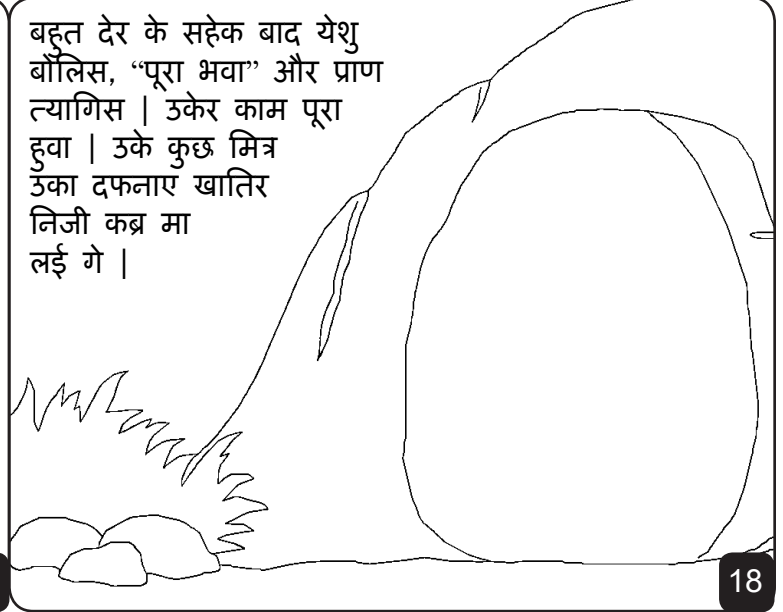 बहुत देर के सहेक बाद येशु
बोलिस, “पूरा भवा” और प्राण
त्यागिस | उकेर काम पूरा
हुवा | उके कुछ मित्र
उका दफनाए खातिर
निजी कब्र मा
लई गे |
18